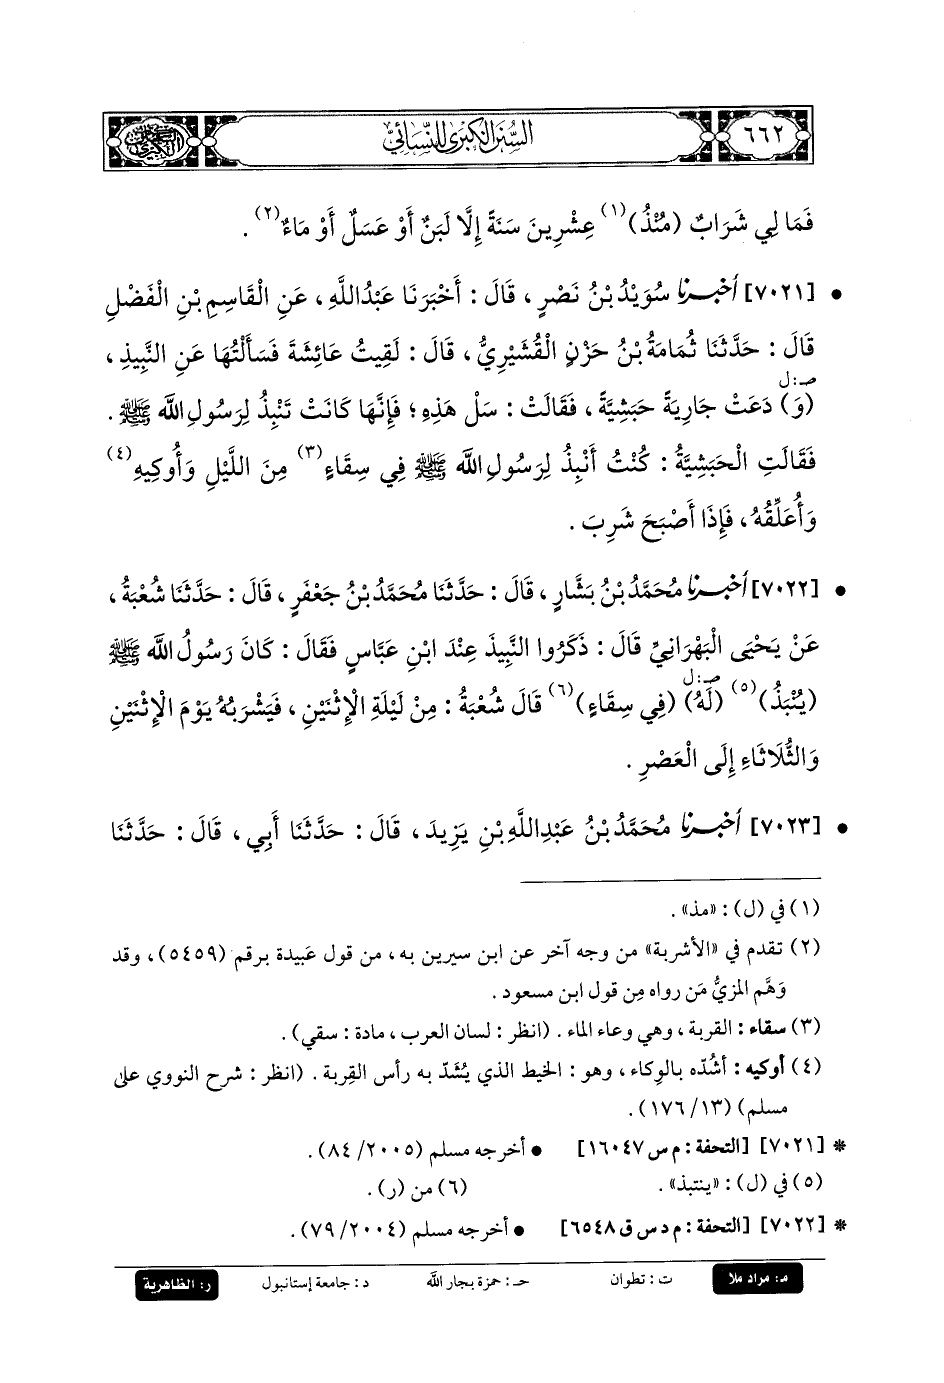 ٦٦٢
السُّنَنُ الكُبْرَىٰ لِلنَّسَائِيِّ
فَمَا لِي شَرَابٌ (مُنْذُ)(١) عِشْرِينَ سَنَةً إِلَّا لَبَنٌ أَوْ عَسَلٌ أَوْ مَاءٌ(٢) .
• [٧٠٢١] أَخْبَرَنَا سُوَيْدُ بْنُ نَصْرٍ ، قَالَ : أَخْبَرَنَا عَبْدُاللَّهِ ، عَنِ الْقَاسِمِ بْنِ الْفَضْلِ
قَالَ : حَدَّثَنَا ثُمَامَةُ بْنُ حَزْنٍ الْقُشَيْرِيُّ ، قَالَ : لَقِيتُ عَائِشَةَ فَسَأَلْتُهَا عَنِ النَّبِيذِ ،
صـ: ل
(وَ) دَعَتْ جَارِيَةً حَبَشِيَّةً ، فَقَالَتْ : سَلْ هَذِهِ ؛ فَإِنَّهَا كَانَتْ تَنْبِذُ لِرَسُولِ اللَّه ﷺ .
فَقَالَتِ الْحَبَشِيَّةُ : كُنْتُ أَنْبِذُ لِرَسُولِ اللَّه ﷺ فِي سِقَاءٍ(٣) مِنَ اللَّيْلِ وَأُوكِيهِ(٤)
وَأُعَلِّقُهُ ، فَإِذَا أَصْبَحَ شَرِبَ .
• [٧٠٢٢] أَخْبَرَنَا مُحَمَّدُ بْنُ بَشَّارٍ ، قَالَ : حَدَّثَنَا مُحَمَّدُ بْنُ جَعْفَرٍ ، قَالَ : حَدَّثَنَا شُعْبَةُ ،
عَنْ يَحْيَى الْبَهْرَانِيِّ قَالَ : ذَكَرُوا النَّبِيذَ عِنْدَ ابْنِ عَبَّاسٍ فَقَالَ : كَانَ رَسُولُ اللَّه ﷺ
صـ: ل
(يُنْبَذُ)(٥) (لَهُ) (فِي سِقَاءٍ)(٦) قَالَ شُعْبَةُ : مِنْ لَيْلَةِ الْإِثْنَيْنِ ، فَيَشْرَبُهُ يَوْمَ الْإِثْنَيْنِ
وَالثُّلَاثَاءِ إِلَى الْعَصْرِ .
• [٧٠٢٣] أَخْبَرَنَا مُحَمَّدُ بْنُ عَبْدِاللَّهِ بْنِ يَزِيدَ ، قَالَ : حَدَّثَنَا أَبِي ، قَالَ : حَدَّثَنَا
(١) في (ل) : «مذ» .
(٢) تقدم في «الأشربة» من وجه آخر عن ابن سيرين به ، من قول عَبيدة برقم (٥٤٥٩) ، وقد
وَهَّم المزيُّ مَن رواه مِن قول ابن مسعود .
(٣) سقاء : القربة ، وهي وعاء الماء . (انظر : لسان العرب ، مادة : سقي) .
(٤) أوكيه : أشُدّه بالوِكاء ، وهو : الخيط الذي يُشَدّ به رأس القِربة . (انظر : شرح النووي على
مسلم) (١٣/ ١٧٦) .
* [٧٠٢١] [التحفة : م س ١٦٠٤٧] • أخرجه مسلم (٢٠٠٥/ ٨٤) .
(٥) في (ل) : «ينتبذ» . (٦) من (ر) .
* [٧٠٢٢] [التحفة : م د س ق ٦٥٤٨] • أخرجه مسلم (٢٠٠٤/ ٧٩) .
مـ: مراد ملا ت : تطوان حـ : حمزة بجار الله د : جامعة إستانبول ر: الظاهرية